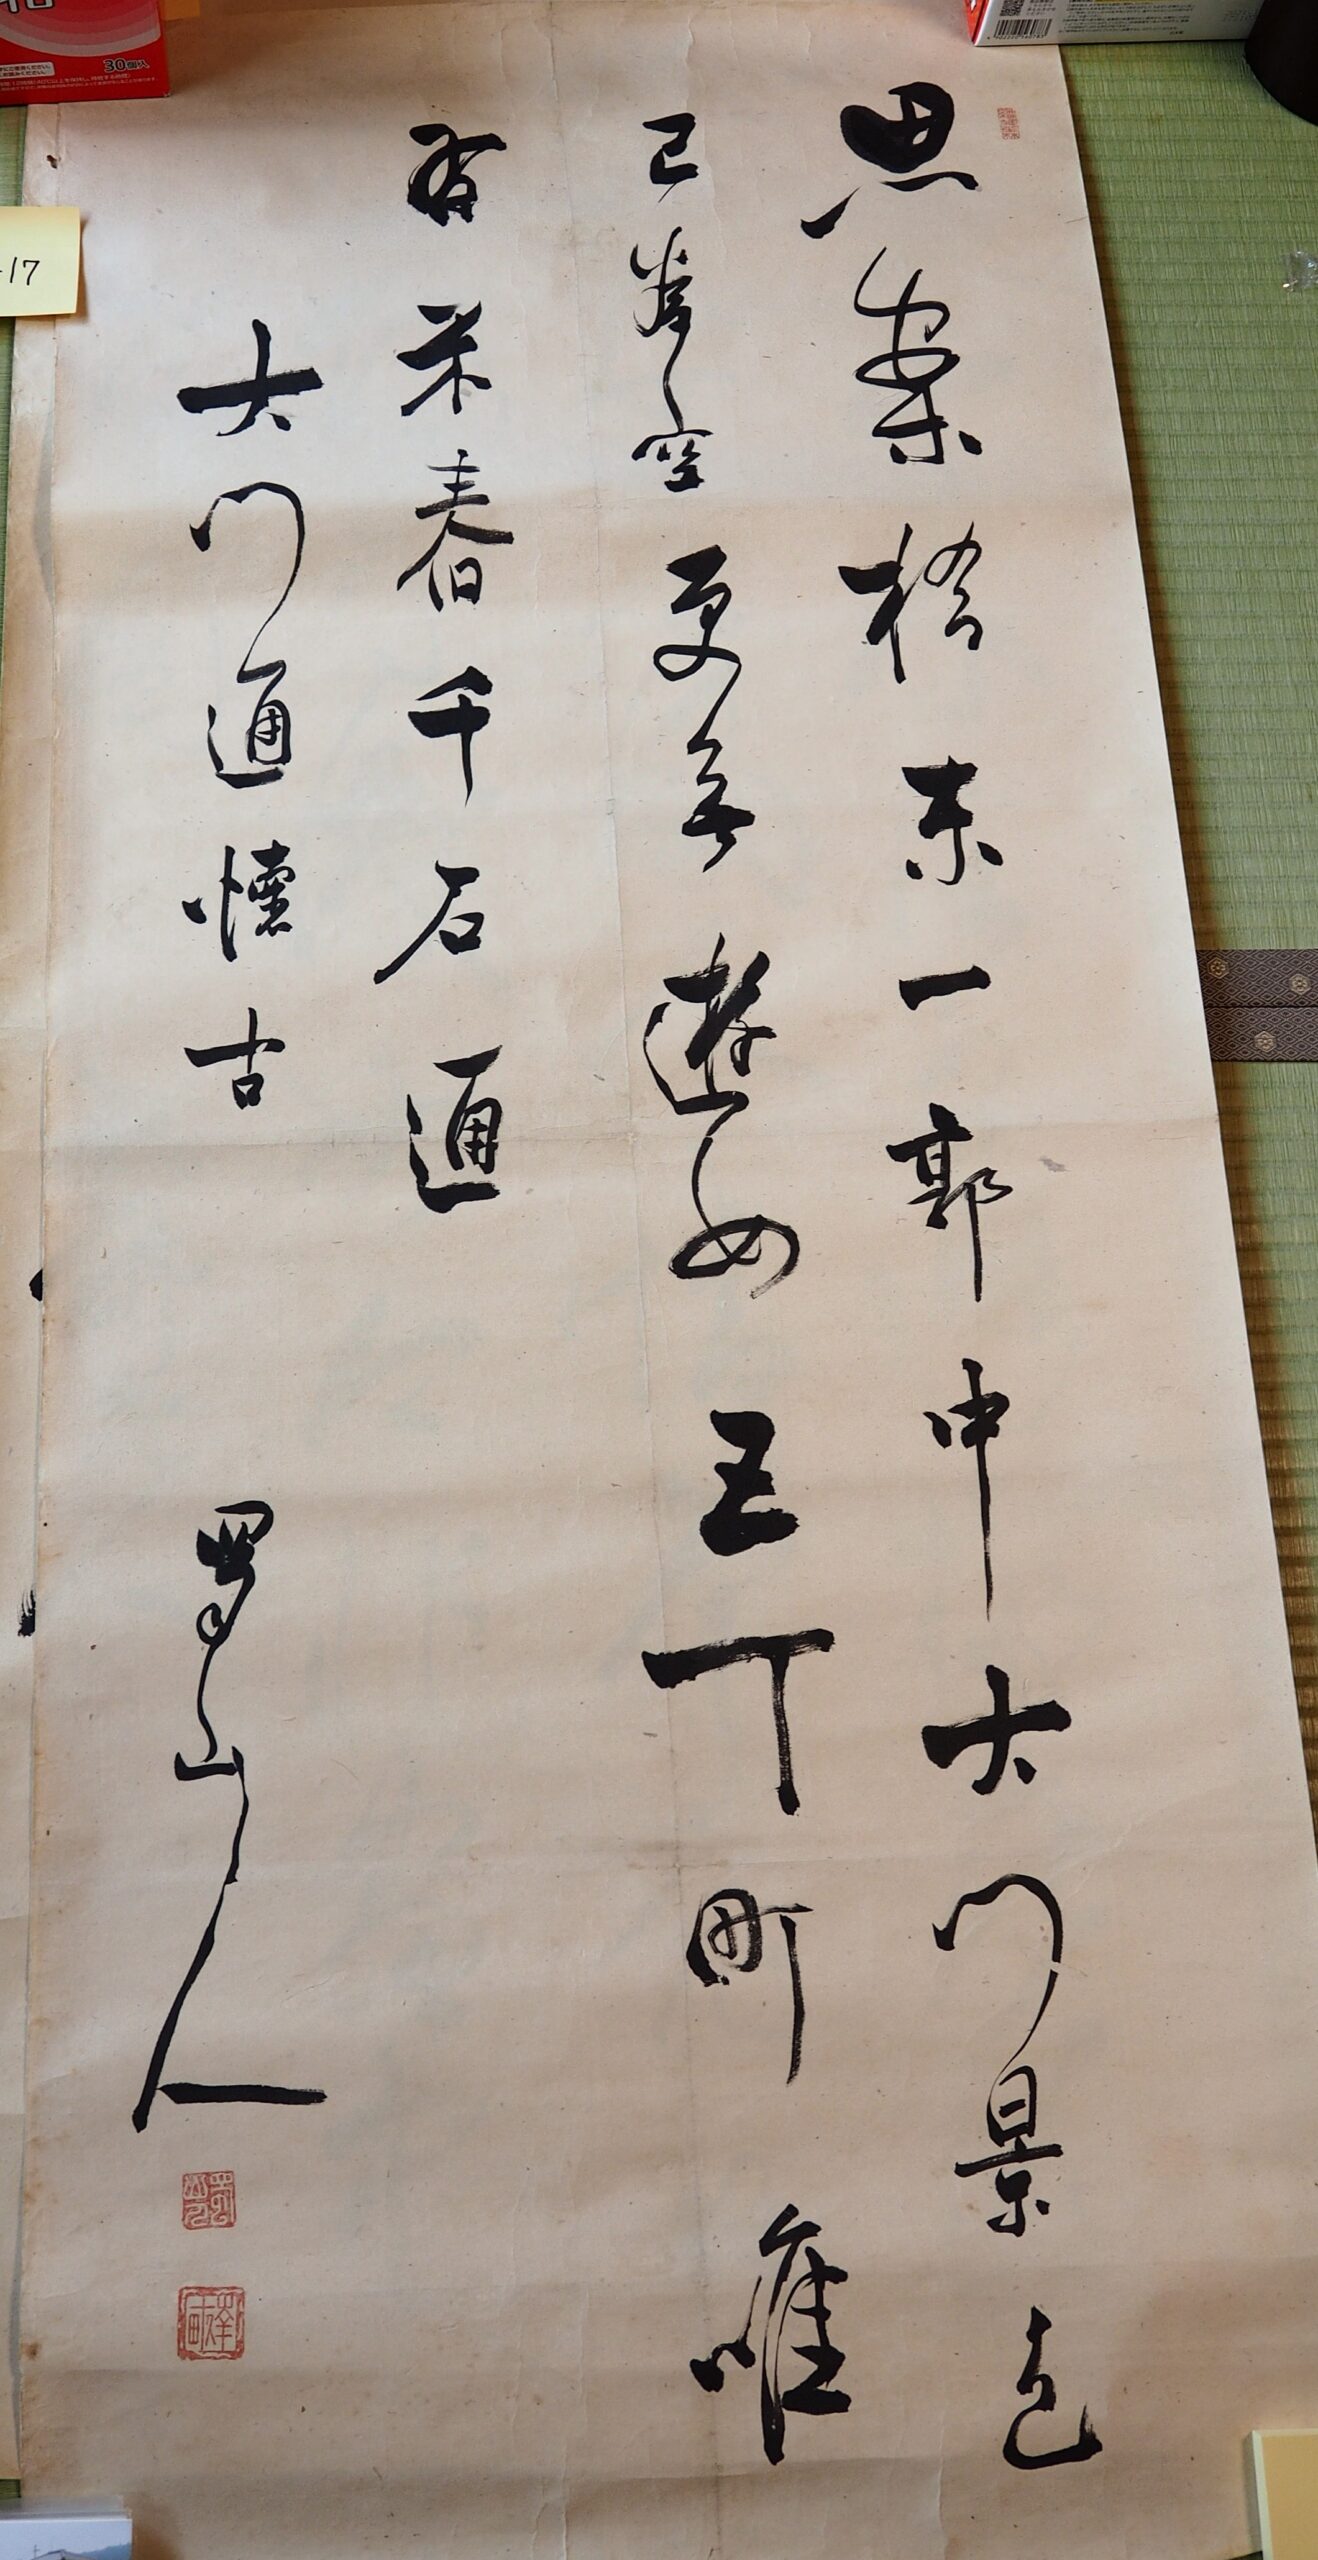 思案橋東一郭中大門景色
已營空更無遊女五丁町唯
有米春千石通
大門通懐古
蜀山人
30個入
-17